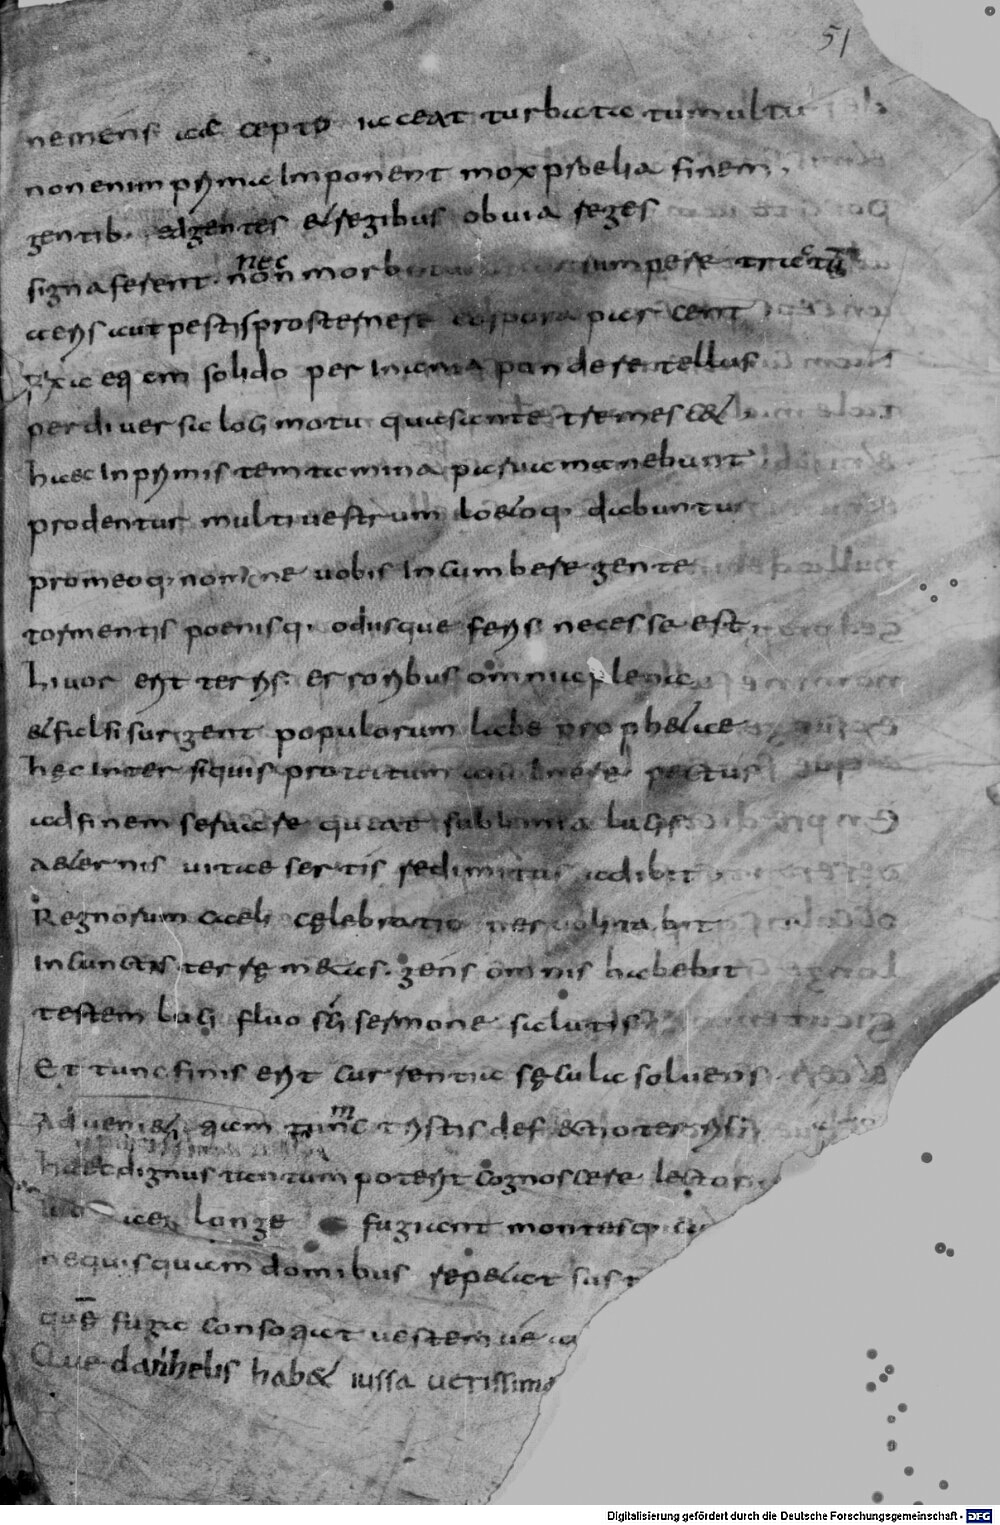 51
ne mens acceptó iaceat turbata tumultu
non enim prima Imponent mox proelia finem,
gentib; ad gentes & regibus obvia reges
signa ferent. nec non morb rumpere tractū
aeris aut pestis prosternere corpora parcent
quin solido per Inania pandere tellus
per diversa loci motu quasante tremesc&
haec In primis temtamina parva manebunt
prodentur multi vestrum loetoq; dabuntur
pro meoq; nomine vobis Incumbere gente
tormentis poenisq; odiisque feris necesse est
Livor erit terris. erroribus omnia plenis
& falsi surgent populorum labe proph&ae
hęc Inter siquis pectus
ad finem servare queat sublimia lucis
a&ernis vitae sertis redimitus adibit
Regnorum caeli cęlebratio nervolitabit
In cunctis terrę m&as. gens omnis habebit
testem loci fluo sermone salutis
Et tunc finis erit currentia sęcula solvens
Adveni& quam tunc tristis def&ctio terris
haec dignus tantum poterit cognoscere lector
longe fugiant montesq;
ne quisquam domibus rep&at
quę fuga consoquat vestem ve
Que danihelis hab& iussa verissima
Digitalisierung gefördert durch die Deutsche Forschungsgemeinschaft - DFG